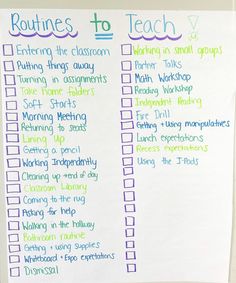 Routines to Teach
Entering the classroom
Putting things away
Turning in assignments
Take home folders
Soft Starts
Morning Meeting
Returning to seats
Lining Up
Getting a pencil
Working Independently
Cleaning up → end of day
Classroom Library
Coming to the rug
Asking for help
Walking in the hallway
Bathroom routine
Getting + using supplies
Whiteboard + Expo expectations
Dismissal
Working in small groups
Partner Talks
Math Workshop
Reading Workshop
Independent Reading
Fire Drill
Getting + using manipulatives
Lunch expectations
Recess expectations
Using the I-Pads